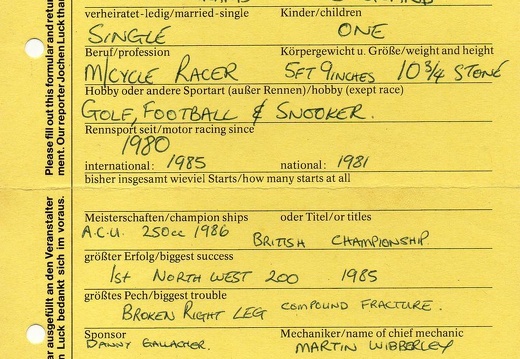 verheiratet-ledig/married-single Kinder/children
SINGLE ONE
Beruf/profession Körpergewicht u. Größe/weight and height
M/CYCLE RACER 5FT 9INCHES 10 3/4 STONE
Hobby oder andere Sportart (außer Rennen)/hobby (exept race)
GOLF, FOOTBALL & SNOOKER.
Rennsport seit/motor racing since
1980
international: 1985 national: 1981
bisher insgesamt wieviel Starts/how many starts at all
Meisterschaften/champion ships oder Titel/or titles
A.C.U. 250cc 1986 BRITISH CHAMPIONSHIP.
größter Erfolg/biggest success
1st NORTH WEST 200 1985
größtes Pech/biggest trouble
BROKEN RIGHT LEG COMPOUND FRACTURE.
Sponsor Mechaniker/name of chief mechanic
DANNY GALLAGHER. MARTIN WIBBERLEY
Please fill out this formular and retur
ment. Our reporter Jochen Luck than
ar ausgefüllt an den Veranstalter
n Luck bedankt sich im voraus.